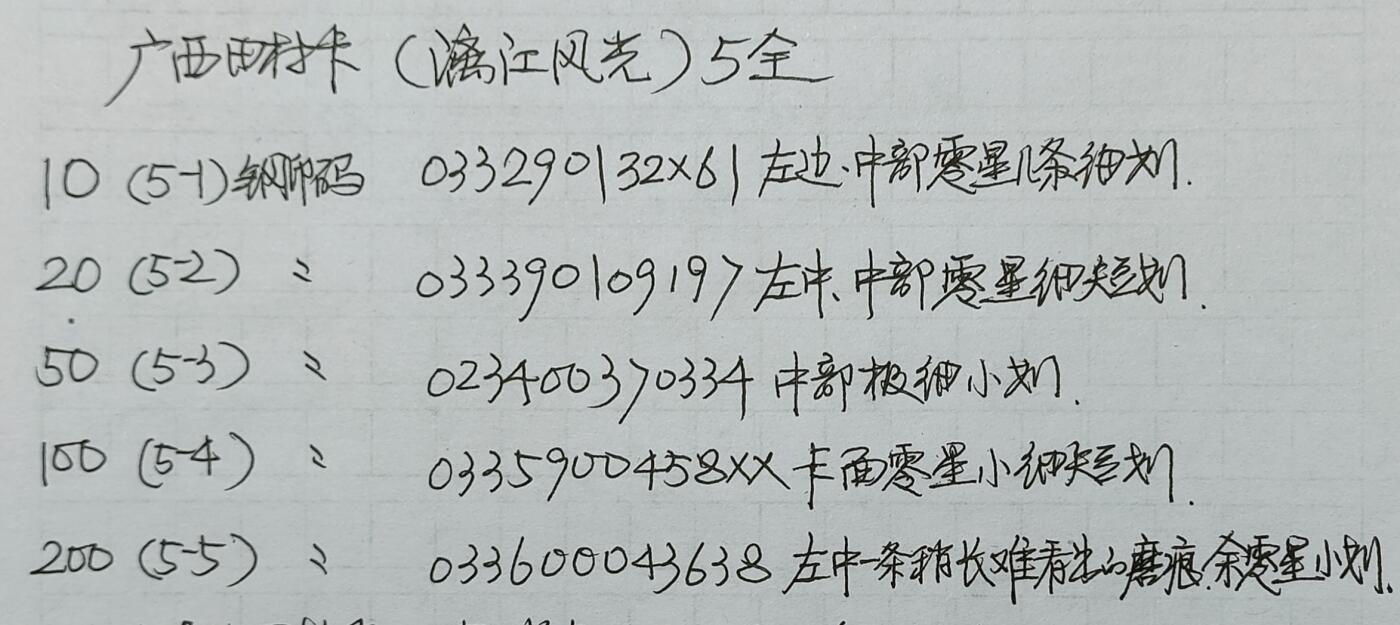 广西田村卡（漓江风光）5全
10 (5-1) 钢印码 033290132XX61 左边、中部零星几条细划.
20 (5-2) 〃 033390109197 左中、中部零星细短划.
50 (5-3) 〃 023400370334 中部极细小划.
100 (5-4) 〃 0335900458XX 卡面零星小细短划.
200 (5-5) 〃 033600043638 左中一条稍长难看出的磨痕.余零星小划.